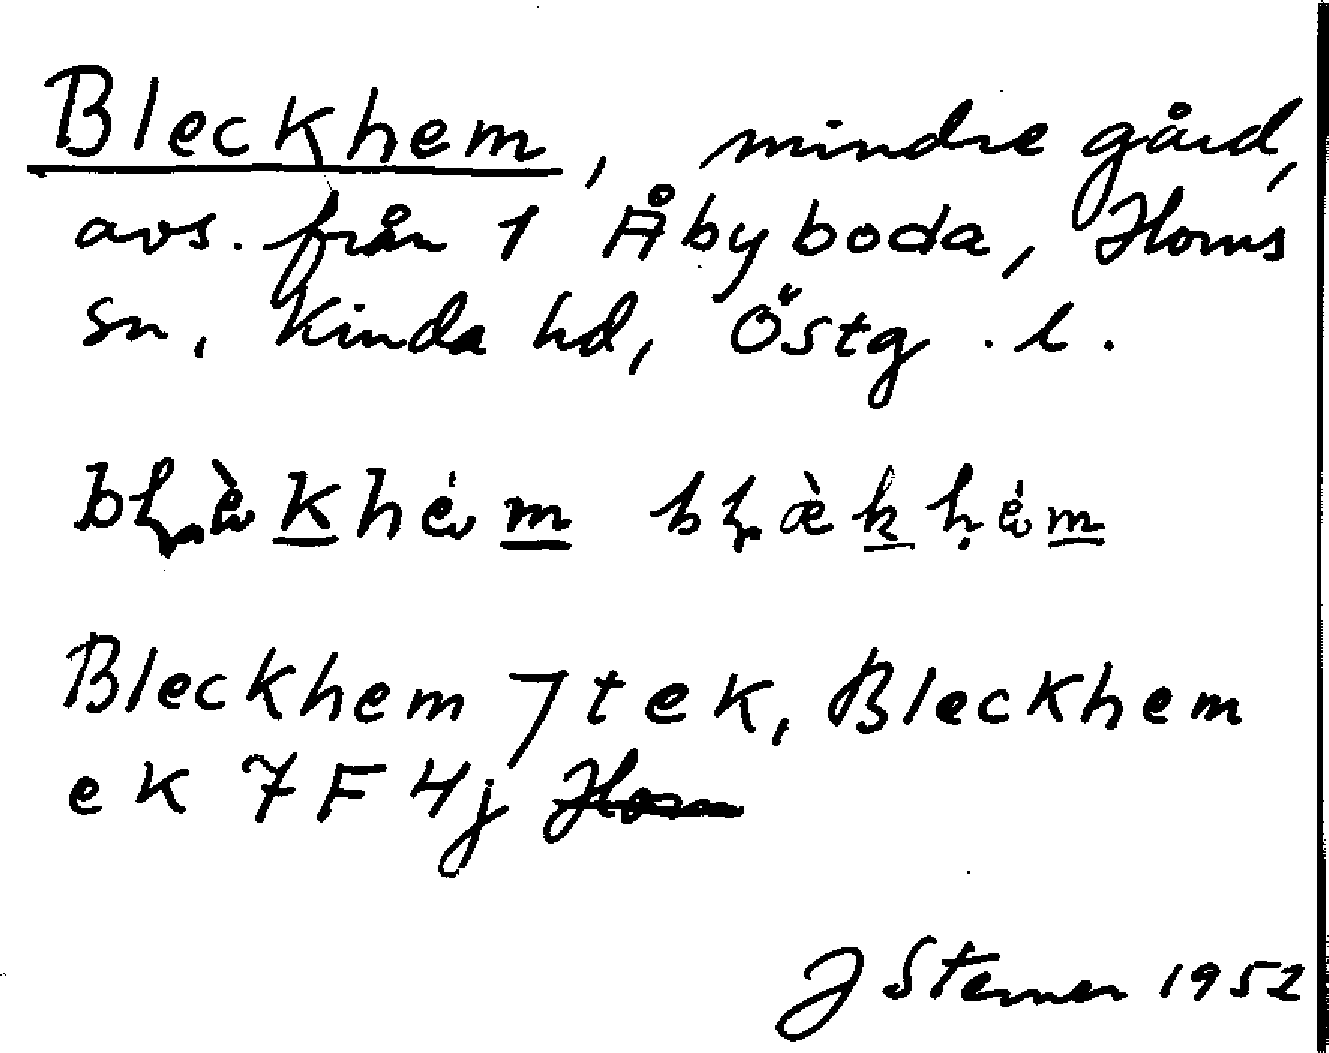 Bleckhem, mindre gård,
avs. från 1 Åbyboda, Horns
sn, Kinda hd, Östg. l.
Bleckhem Jtek, Bleckhem
ek 7F4j Horn
J Sterner 1952